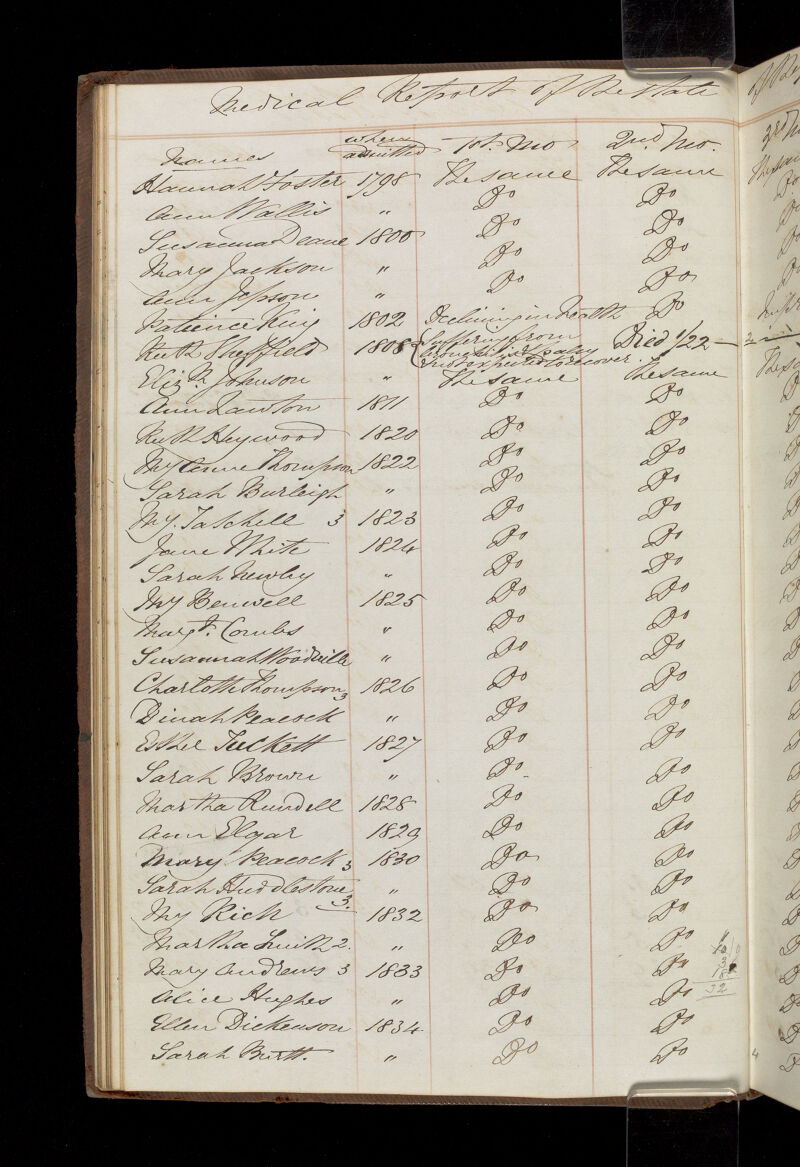 Medical Report of the State
Names when admitted 1st. Mo 2nd. Mo.
Hannah Foster 1798 The same The same
Ann Wallis " Do Do
Susanna Deane 1800 Do Do
Mary Jackson " Do Do
Ann Jepson " Do Do
Patience King 1802 Declining in health Do
Ruth Sheffield 1808 { suffering from Died 1/22
Palsy
not expected to recover.
Eliz.h Johnson " The same The same
Ann Lawton 1811 Do Do
Ruth Heywood 1820 Do Do
My Anne Thompson 1822 Do Do
Sarah Burleigh " Do Do
My. Tatchell 3 1823 Do Do
Jane White 1824 Do Do
Sarah Newby " Do Do
My Benwell 1825 Do Do
Margt. Combs " Do Do
Susannah Woodville " Do Do
Charlotte Thompson 3 1826 Do Do
Dinah Peacock " Do Do
Esther Tuckett 1827 Do Do
Sarah Brown " Do Do
Martha Rundell 1828 Do Do
Ann Elgar 1829 Do Do
Mary Peacock 3 1830 Do Do
Sarah Huddlestone 3. " Do Do
My Rich 1832 Do Do
Martha Smith 2. " Do Do
Mary Andrews 3 1833 Do Do
Alice Hughes " Do Do
32
Ellen Dickenson 1834 Do Do
Sarah Burtt. " Do Do